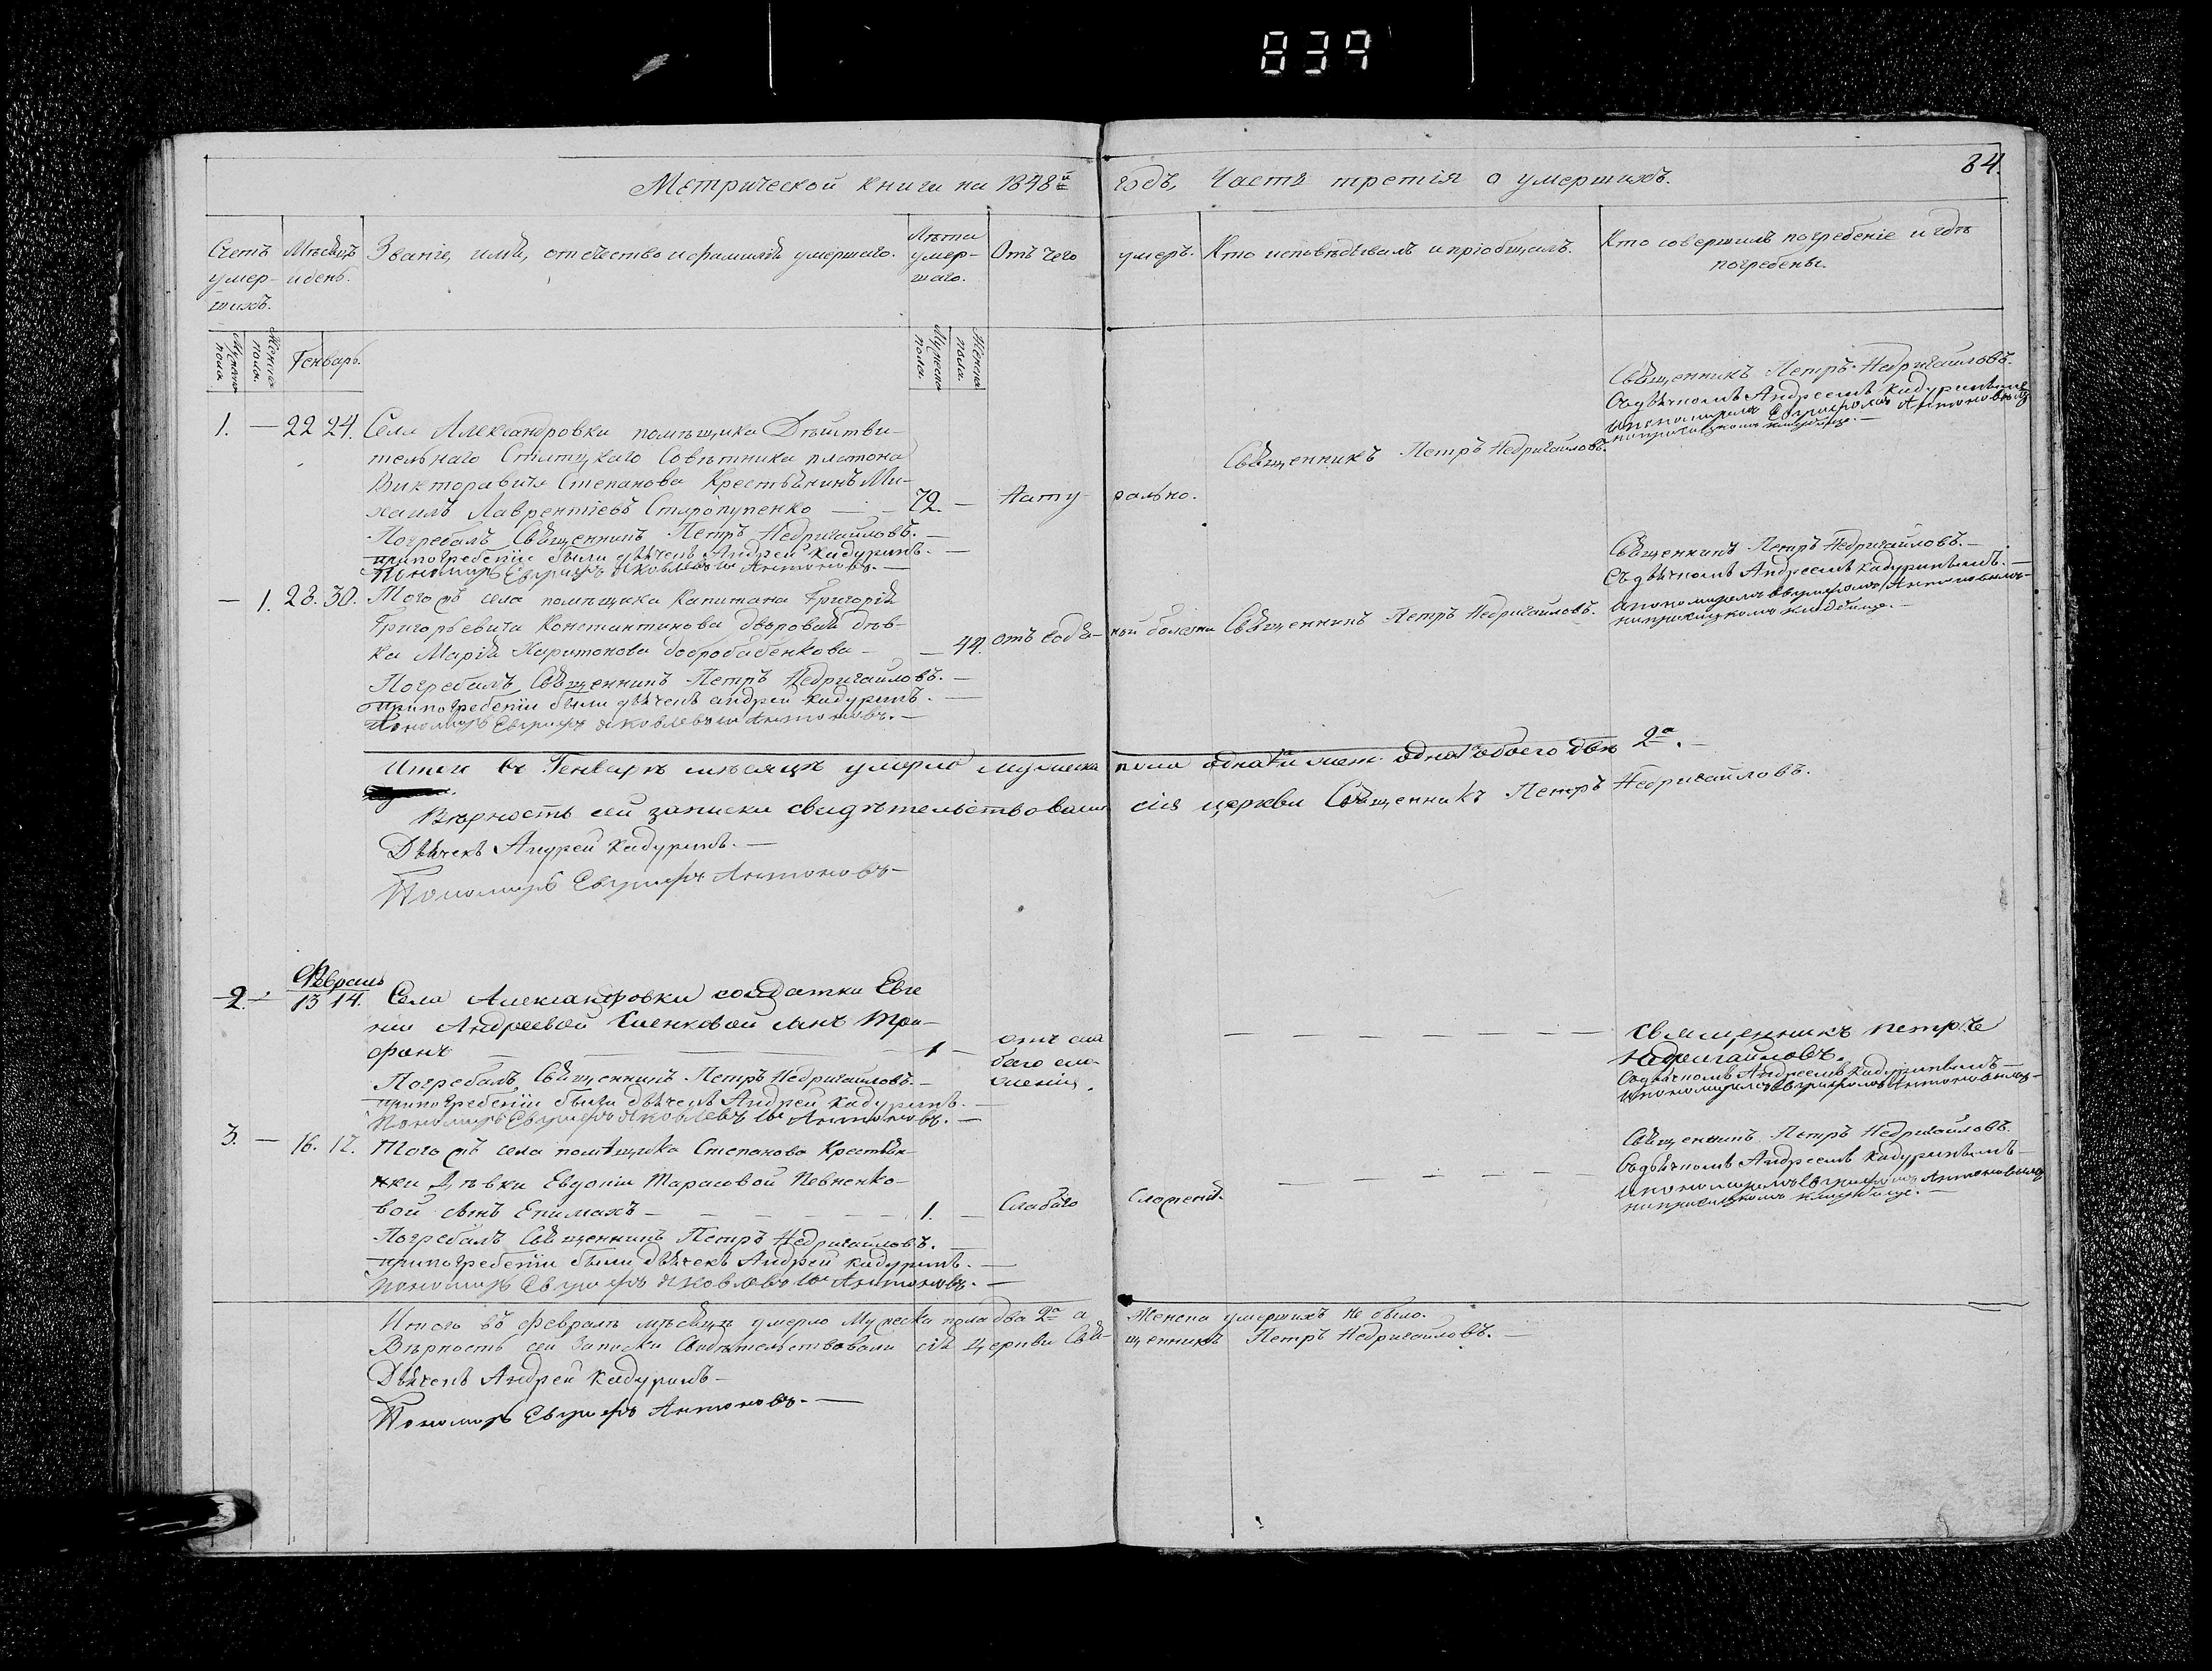 839
84.
Метрической книги на 1848й годъ, Часть третія о умершихъ.
Счетъ умер- шихъ.
Мѣсяцъ и день.
Званіе, имя, отечество и фамилія умершаго.
Лѣта умер- шаго.
Отъ чего умеръ.
Кто исповѣдывалъ и пріобщалъ.
Кто совершилъ погребеніе и гдѣ погребены.
Мужеска пола.
Женска пола.
Генварь.
Мужеска пола.
Женска пола.
1. — 22 24. Села Александровки помѣщика Дѣйстви-
тельнаго Статскаго Совѣтника платона
Викторавича Степанова Крестьянинъ Ми-
хаилъ Лаврентіевъ Старопупенко — 72. — Нату- рально.
Священникъ Петръ Недригайловъ.
Священникъ Петръ Недригайловъ.
Съ дьячкомъ Андреемъ Кадуринымъ
и пономаремъ Антоновымъ
на приходскомъ кладбище. —
Погребалъ Священникъ Петръ Недригайловъ. —
при погребеніи были дьячекъ Андрей Кадуринъ. —
Пономарь Яковлевъ Антоновъ. —
— 1. 28. 30. Того жъ села помѣщика Капитана Григорія
Григорьевича Константинова дворовая дѣв-
ка Марія Харитонова добробабенкова — — 44. отъ водя- ной болезни
Священникъ Петръ Недригайловъ.
Священникъ Петръ Недригайловъ. —
Съ дьячкомъ Андреемъ Кадуринымъ. —
и пономаремъ Антоновымъ
на приходскомъ кладбище. —
Погребалъ Священникъ Петръ Недригайловъ. —
при погребеніи были дьячекъ андрей Кадуринъ. —
Пономарь Яковлевъ Антоновъ. —
Итого въ Генварѣ месяцѣ умерло мужеска пола одна и жен. одна обоего два 2а. —
Вѣрность сей записки свидѣтельствовали сія церкви Священникъ Петръ Недригайловъ.
Дьячекъ Андрей Кадуринъ. —
Пономарь Антоновъ —
Февраль
2 — 13 14. Села Александровки солдатки Евге
ніи Андреевой сынъ Три-
фонъ — 1 — отъ сла
баго сло-
женія.
— — — — — —
священникъ петръ
недригайловъ.
Съ дьячкомъ Андреемъ Кадуринымъ —
и пономаремъ Антоновымъ —
Погребалъ Священникъ Петръ Недригайловъ. —
при погребеніи были дьячекъ Андрей Кадуринъ. —
Пономарь Яковлевъ Антоновъ. —
3. — 16. 17. Того жъ села помѣщика Степанова Крестьян-
ки Дѣвки Евдокіи Тарасовой Певненко-
вой сынъ Епимахъ — — — — — 1. — Слабаго Сложенія.
— — — — — —
Священникъ Петръ Недригайловъ.
Съ дьячкомъ Андреемъ Кадуринымъ —
и пономаремъ Антоновымъ
на приходскомъ кладбище. —
Погребалъ Священникъ Петръ Недригайловъ. —
при погребеніи были дьячекъ Андрей Кадуринъ. —
Пономарь Яковлевъ Антоновъ. —
Итого въ Февралѣ мѣсяцѣ умерло Мужеска пола два 2а а Женска умершихъ не было.
Вѣрность сей Записки Свидѣтельствовали сія Церкви Свя- щенникъ Петръ Недригайловъ. —
Дьячекъ Андрей Кадуринъ —
Пономарь Антоновъ. —